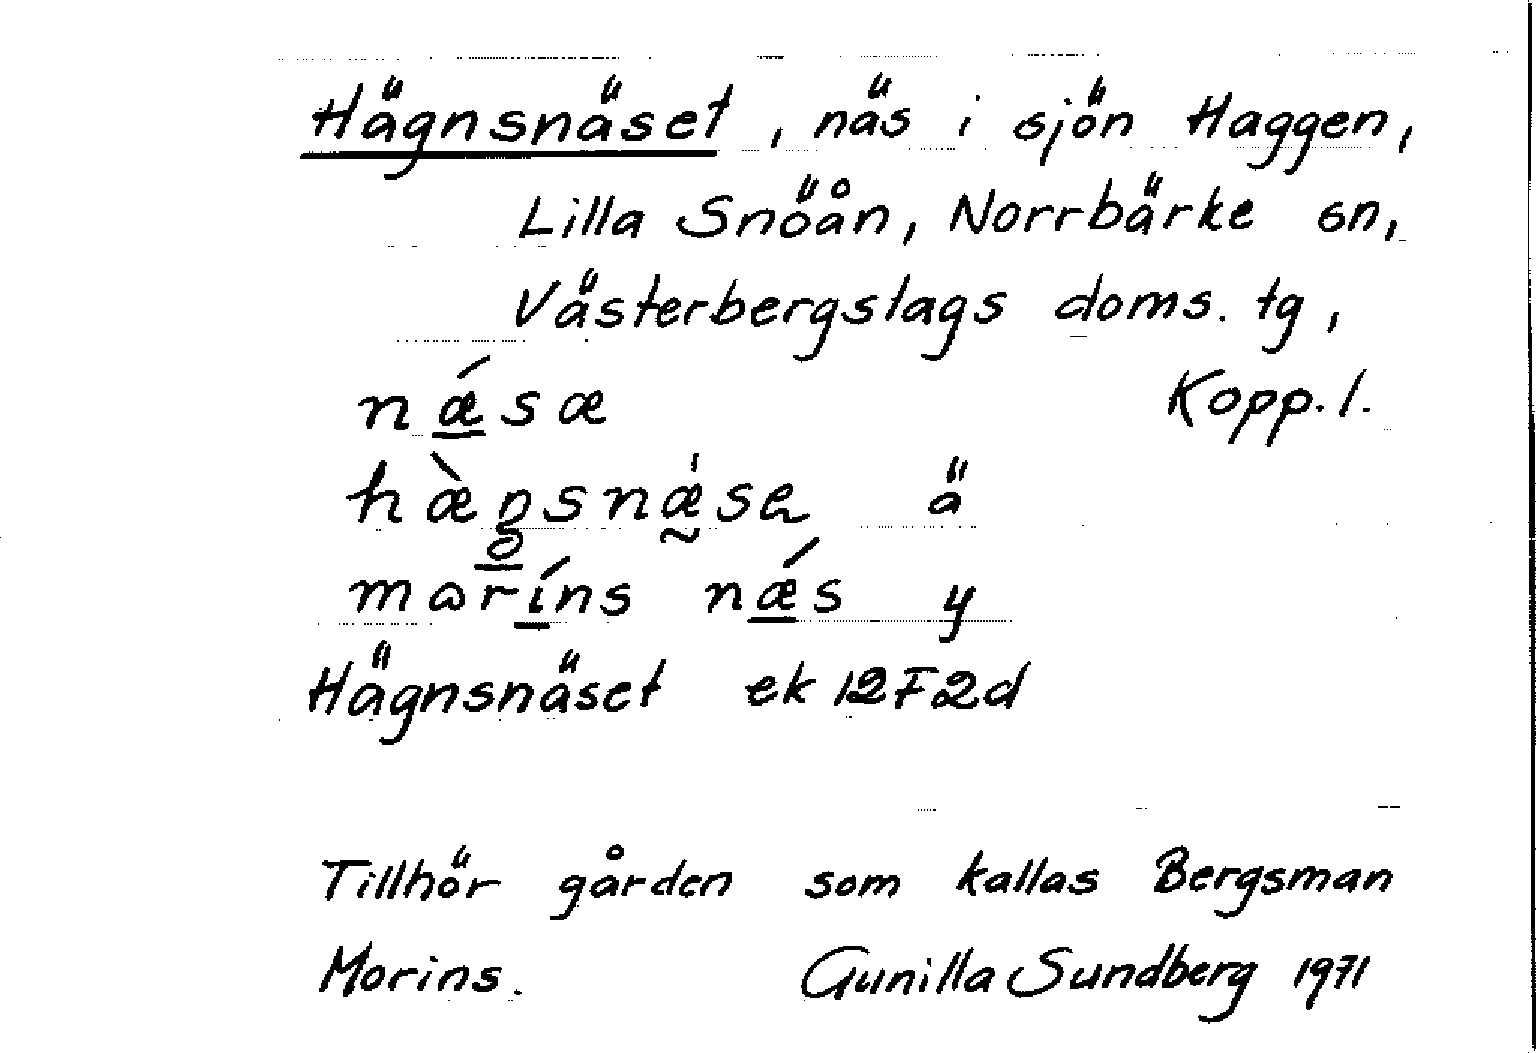 Hägnsnäset, näs i sjön Haggen,
Lilla Snöån, Norrbärke sn,
Västerbergslags doms. tg,
nǽsæ Kopp. l.
ä
nǽs y
Hägnsnäset ek 12F2d
Tillhör gården som kallas Bergsman
Morins. Gunilla Sundberg 1971